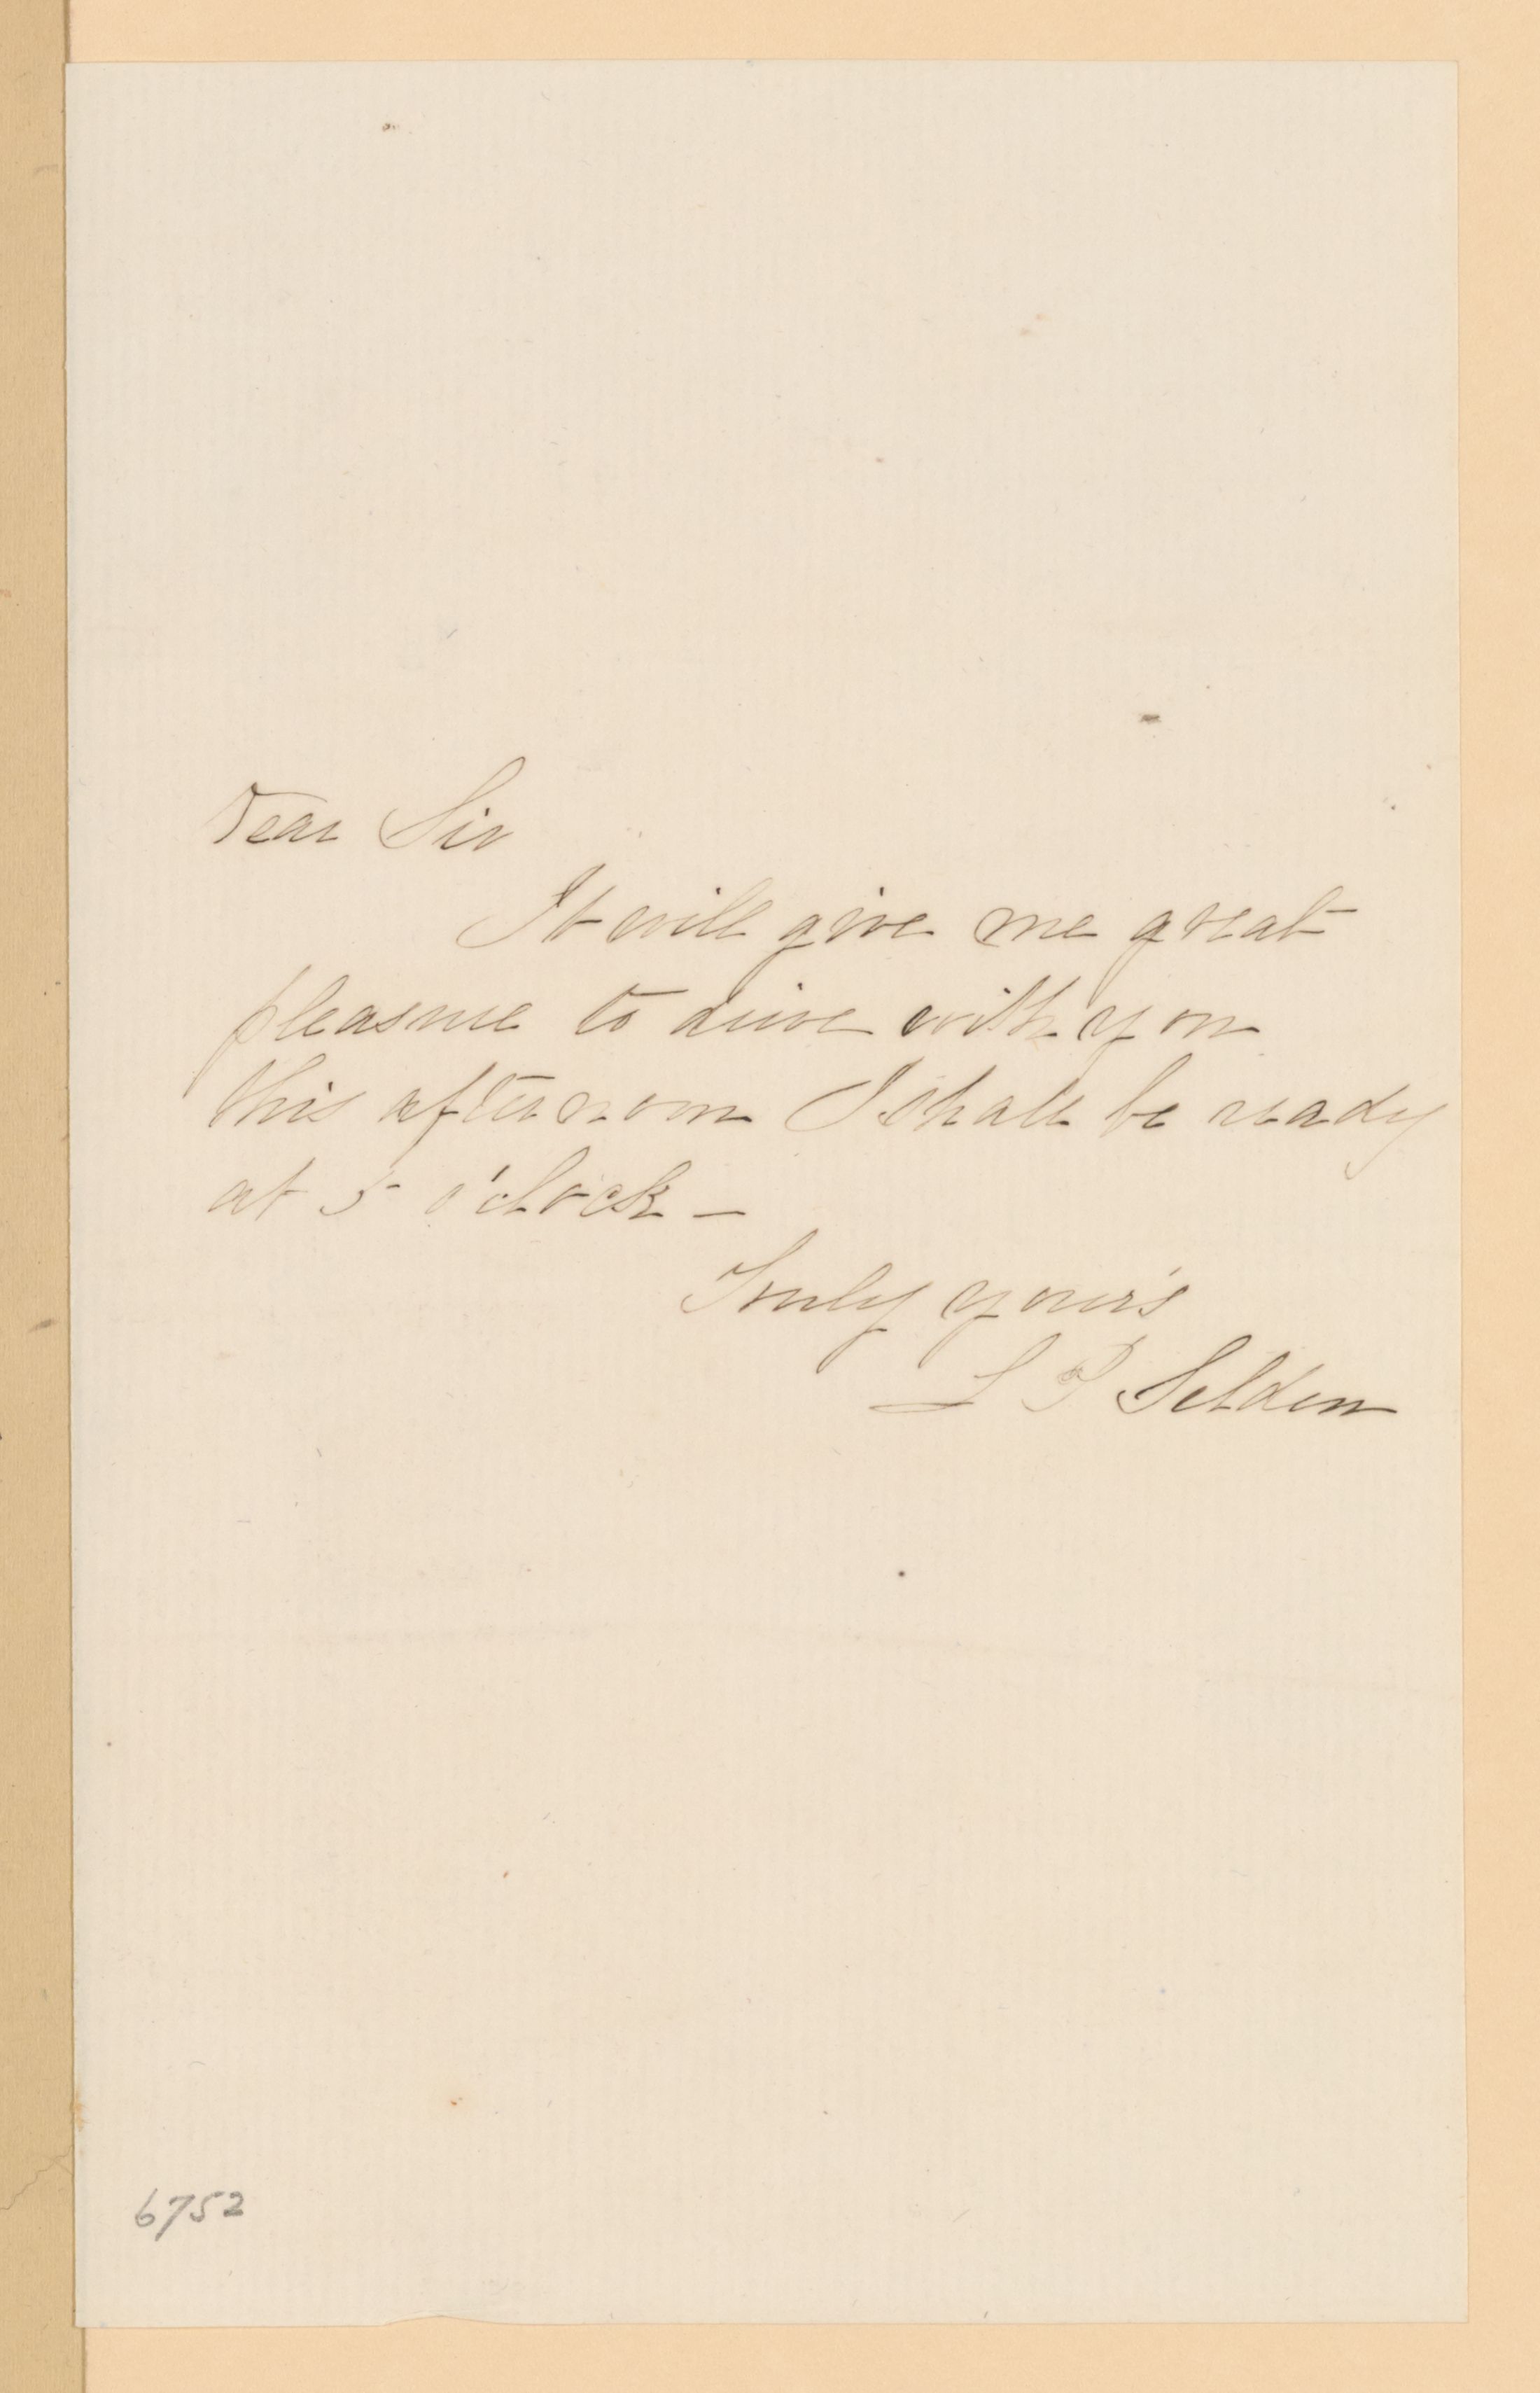 Dear Sir
It will give me great
pleasure to drive with you
this afternoon I shall be ready
at 5 o'clock –
Truly your's
L P Selden
6752